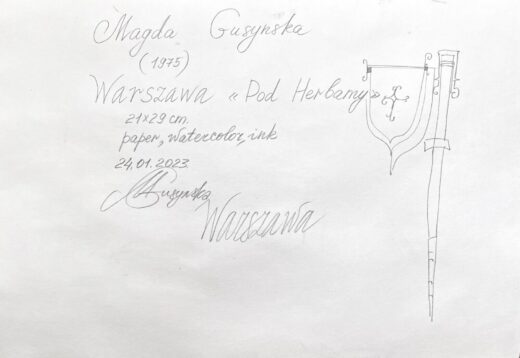 Magda Gusyńska
(1975)
Warszawa « Pod Herbamy»
21×29 cm.
paper, watercolor, ink
24.01.2023
MGusyńska
Warszawa